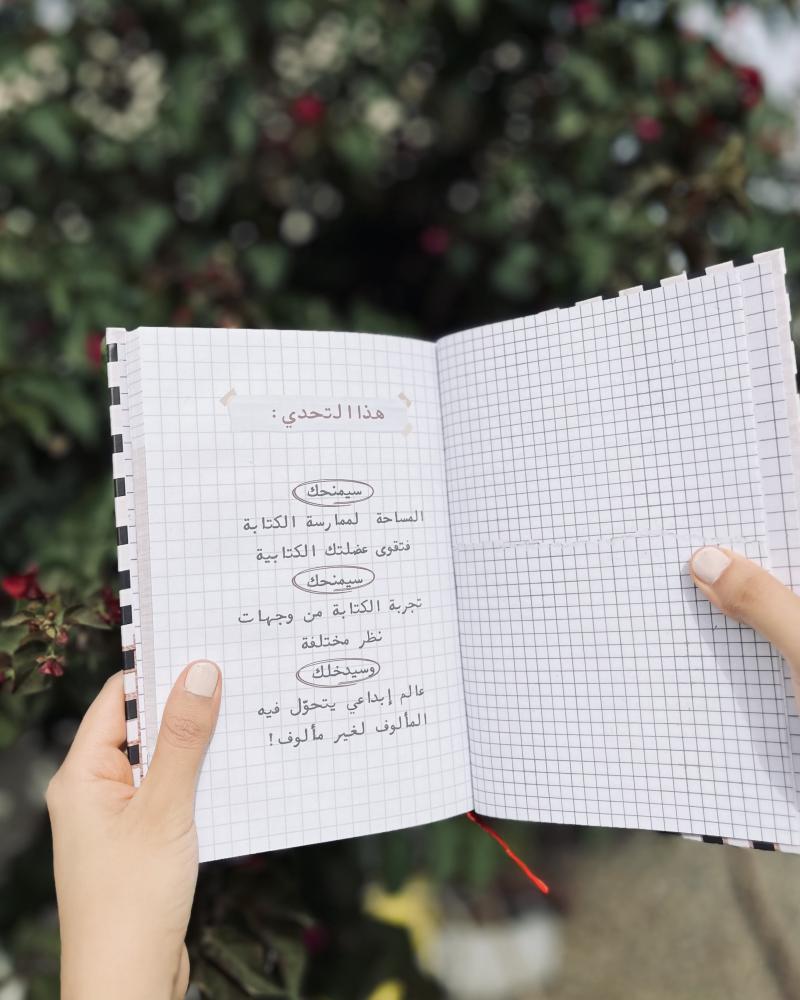 هذا التحدي :
سيمنحك
المساحة لممارسة الكتابة
فتقوى عضلتك الكتابية
سيمنحك
تجربة الكتابة من وجهات
نظر مختلفة
وسيدخلك
عالم إبداعي يتحوّل فيه
المألوف لغير مألوف!